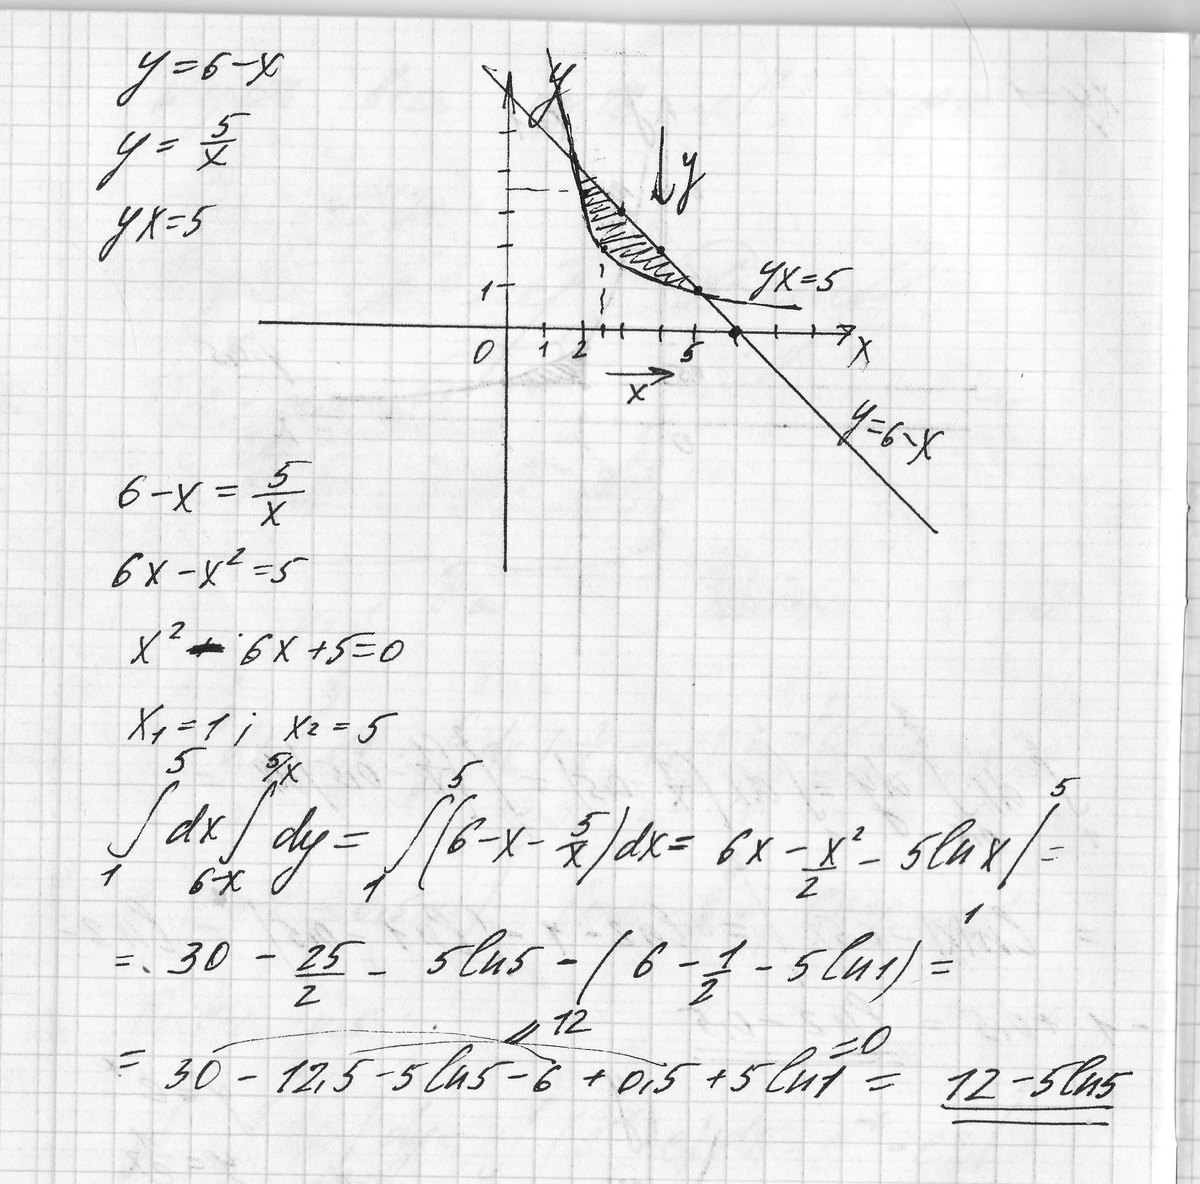 y=6-x
y=5/x
yx=5
y
y
1
yx=5
0 1 2 5 x
x
y=6-x
6-x=5/x
6x-x²=5
x²-6x+5=0
x₁=1; x₂=5
∫₁⁵dx∫_{6-x}^{5/x}dy=∫₁⁵(6-x-5/x)dx=6x-x²/2-5lnx|₁⁵=
=30-25/2-5ln5-(6-1/2-5ln1)=
12
=0
=30-12,5-5ln5-6+0,5+5ln1=12-5ln5